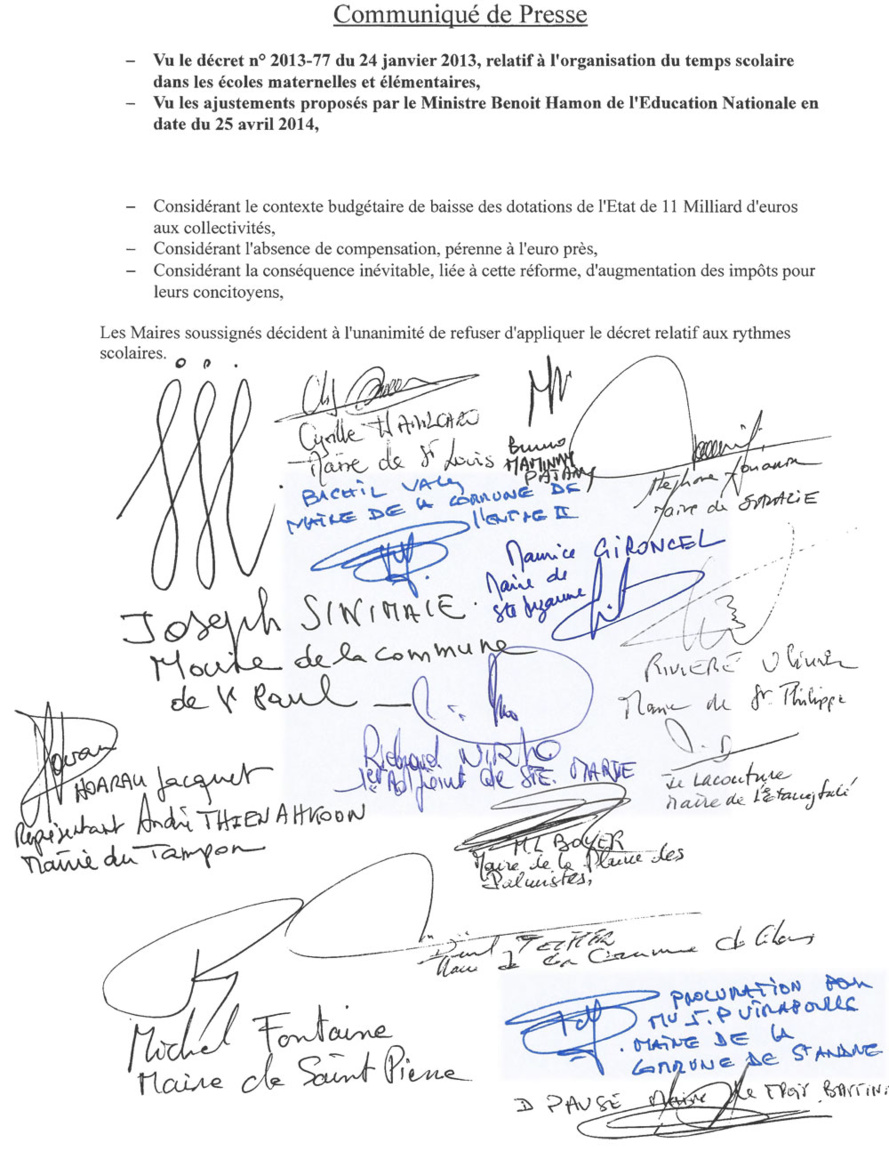 Communiqué de Presse
– Vu le décret n° 2013-77 du 24 janvier 2013, relatif à l'organisation du temps scolaire
dans les écoles maternelles et élémentaires,
– Vu les ajustements proposés par le Ministre Benoit Hamon de l'Education Nationale en
date du 25 avril 2014,
– Considérant le contexte budgétaire de baisse des dotations de l'Etat de 11 Milliard d'euros
aux collectivités,
– Considérant l'absence de compensation, pérenne à l'euro près,
– Considérant la conséquence inévitable, liée à cette réforme, d'augmentation des impôts pour
leurs concitoyens,
Les Maires soussignés décident à l'unanimité de refuser d'appliquer le décret relatif aux rythmes
scolaires.
Cyrille HAMILCARO
Maire de St Louis
Bruno
MAMINDY
PAJANY
Maire de
BACHIL VALY
MAIRE DE LA COMMUNE DE
L'ENTRE II
Maurice GIRONCEL
Maire de
Ste Suzanne
Joseph SINIMALE
Maire de la commune
de St Paul
RIVIERE Olivier
Maire de St Philippe
Richard NIRLO
1er Adjoint de STE. MARIE
HOARAU Jacquet
Représentant André THIEN AH KOON
Mairie du Tampon
JC Lacouture
Maire de L'Etang Salé
ML BOYER
Maire de la Plaine des
Palmistes,
Maire de la Commune de
Michel Fontaine
Maire de Saint Pierre
PROCURATION POUR
MR J.P VIRAPOULLE
MAIRE DE LA
COMMUNE DE ST ANDRE
D PAUSE Maire de TROIS BASSINS